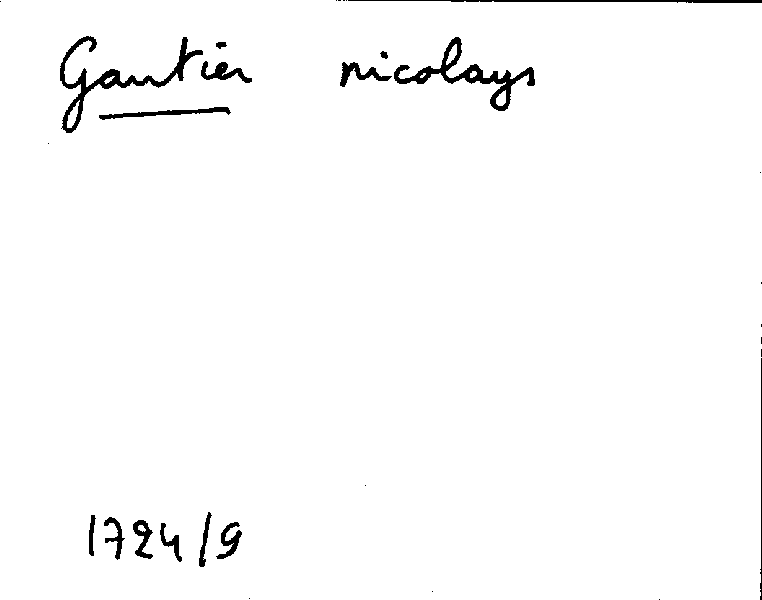 Gautier nicolays
1724/9